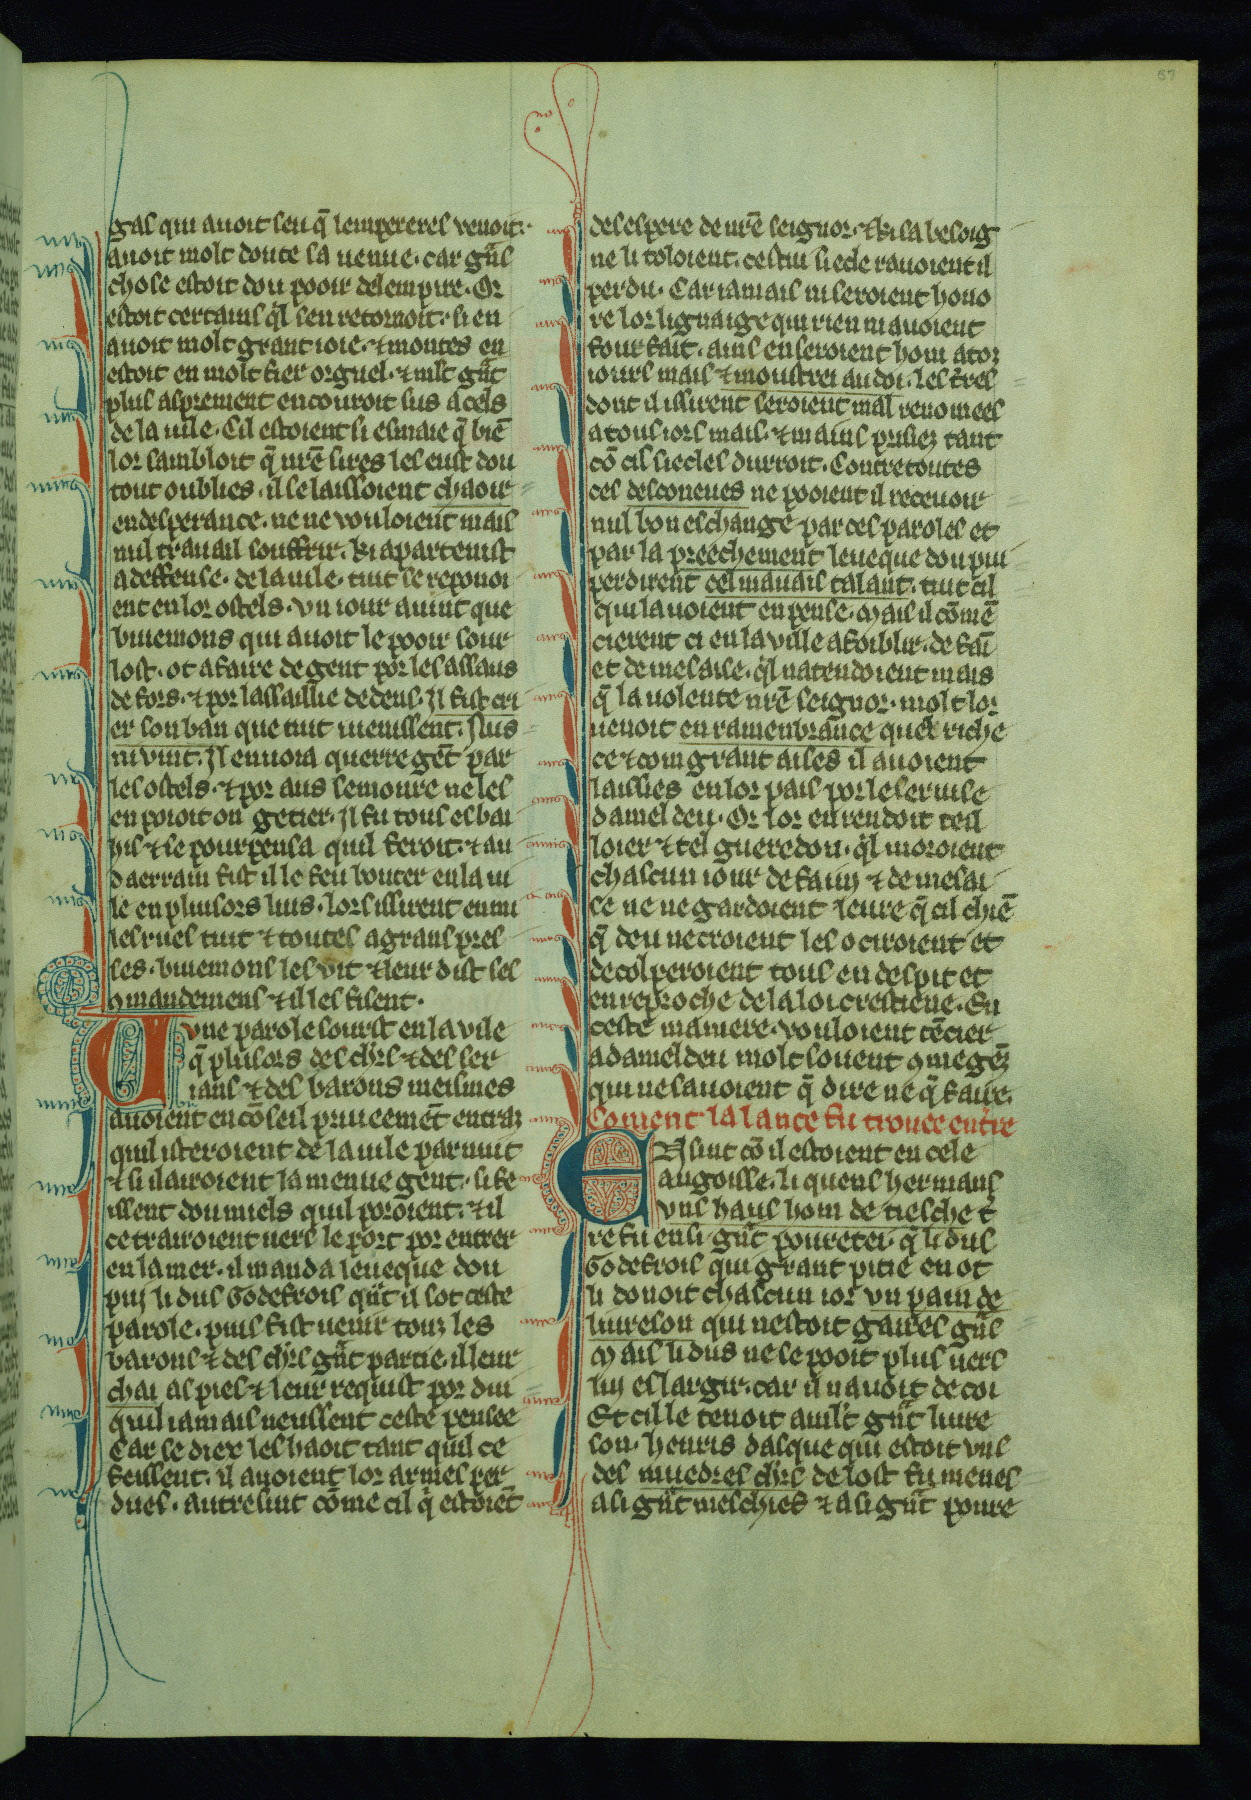 57
gas qui auoit seu q̄ lempereres venoit.
auoit molt doute sa uenue. car gͣns
chose estoit dou pooir delempire. Or
estoit certains ql̓ sen retornoit. si en
auoit molt grant ioie. ⁊ montes en
estoit en molt fier orguel. ⁊ mlt̓ gͣnt
plus asprement encouroit sus a cels
de la uile. Cil estoient si esmaie q̄ biē
lor sambloit q̄ nr̄e sires les eust dou
tout oublies. il se laissoient chaoir
en desperance. ne ne vouloient mais
nul trauail souffrir. ki apartenist
a deffense. de la uile. tuit se reponoi
ent en lor ostels. vn iour auint que
buiemons qui auoit le pooir sour
lost. ot a faire de gent por les assaus
de fors. ⁊ por lassaillie dedens. Il fist cri
er son ban que tuit uenissent. Nus
ni vint. Il enuoia querre gēt par
les ostels. ⁊ por aus semonre ne les
en pooit on getier. Il fu tous esbai
his ⁊ se pourpensa quil feroit. ⁊ au
daerrain fist il le feu bouter en la ui
le en pluisors lius. lors issirent enmi
les rues tuit ⁊ toutes a grans pres
ses. buiemons les vit ⁊ leur dist ses
9mandemens ⁊ il les fisent.
Vne parole sourst en la vile
q̄ pluisors des chrs̄ ⁊ des ser
ians ⁊ des barons meismes
auoient en cōseil priueemēt entraz
quil isteroient de la uile par nuit
⁊ si lairoient la menue gent. si fe
issent dou miels quil poroient. ⁊ il
ce trairoient uers le port por entrer
en la mer. il manda leueque dou
pui li dus Godefrois qn̄t il sot ceste
parole. puis fist uenir touz les
barons ⁊ des chrs̄ gͣnt partie. il leur
chai as pies ⁊ leur requist por diu
quil iamais neussent ceste pensee
Car se diex les haoit tant quil ce
feissent. il auoient lor armes per
dues. autresint cōme cil q̄ estoiēt
desespere de nr̄e seignor. ⁊ ki sa besoig
ne li toloient. cestui siecle rauoient il
perdu. Car iamais ni seroient hono
re lor lignaige qui rien ni auoient
fourfait. ains en seroient honi a toz
iours mais ⁊ moustrei au doi. les tr̄es
dont il issirent seroient mal renomees
a tous iors mais. ⁊ mains prisiez tant
cō cil siecles durroit. Contre toutes
ces desconeues ne pooient il receuoir
nul bon eschange. par ces paroles et
par la preechement leueque dou pui
perdirent cel mauais talant. tuit cil
qui lauoient en pense. Mais il cōmē
cierent ci en la ville a foiblir. de fai
et de mesaise. ql̓ natendoient mais
q̄ la uolente nr̄e seignor. molt lor
uenoit en ramenbrance quel riche
ce ⁊ com grant aises il auoient
laissies en lor pais por le seruise
damel deu. Or lor en rendoit teil
loier ⁊ tel gueredon. ql̓ moroient
chascun iour de faim ⁊ de mesai
se ne ne gardoient leure q̄ cil chiē
q̄ deu ne croient les ociroient et
decolperoient tous en despit et
en reproche de la loi crestiene. En
ceste maniere. vouloient tēcier
a damel deu molt souent 9me gēz
qui ne sauoient q̄ dire ne q̄ faire.
Coment la lance fu trouee en tr̄e
Ensint cō il estoient en cele
angoisse. li quens hermans
vns haus hom de tiesche t̓
re fu en si gͣnt pouretei. q̄ li dus
Godefrois qui grant pitie en ot
li donoit chascun ior vn pain de
liureson qui nestoit gaires gͣns
Mais li dus ne se pooit plus uers
lui eslargir. car il nauoit de coi
Et cil le tenoit a ml̓t gͣnt liure
son. henris dasque qui estoit vns
des muedres chrs̄ de lost fu menes
a si gͣnt meschies ⁊ a si gͣnt poure